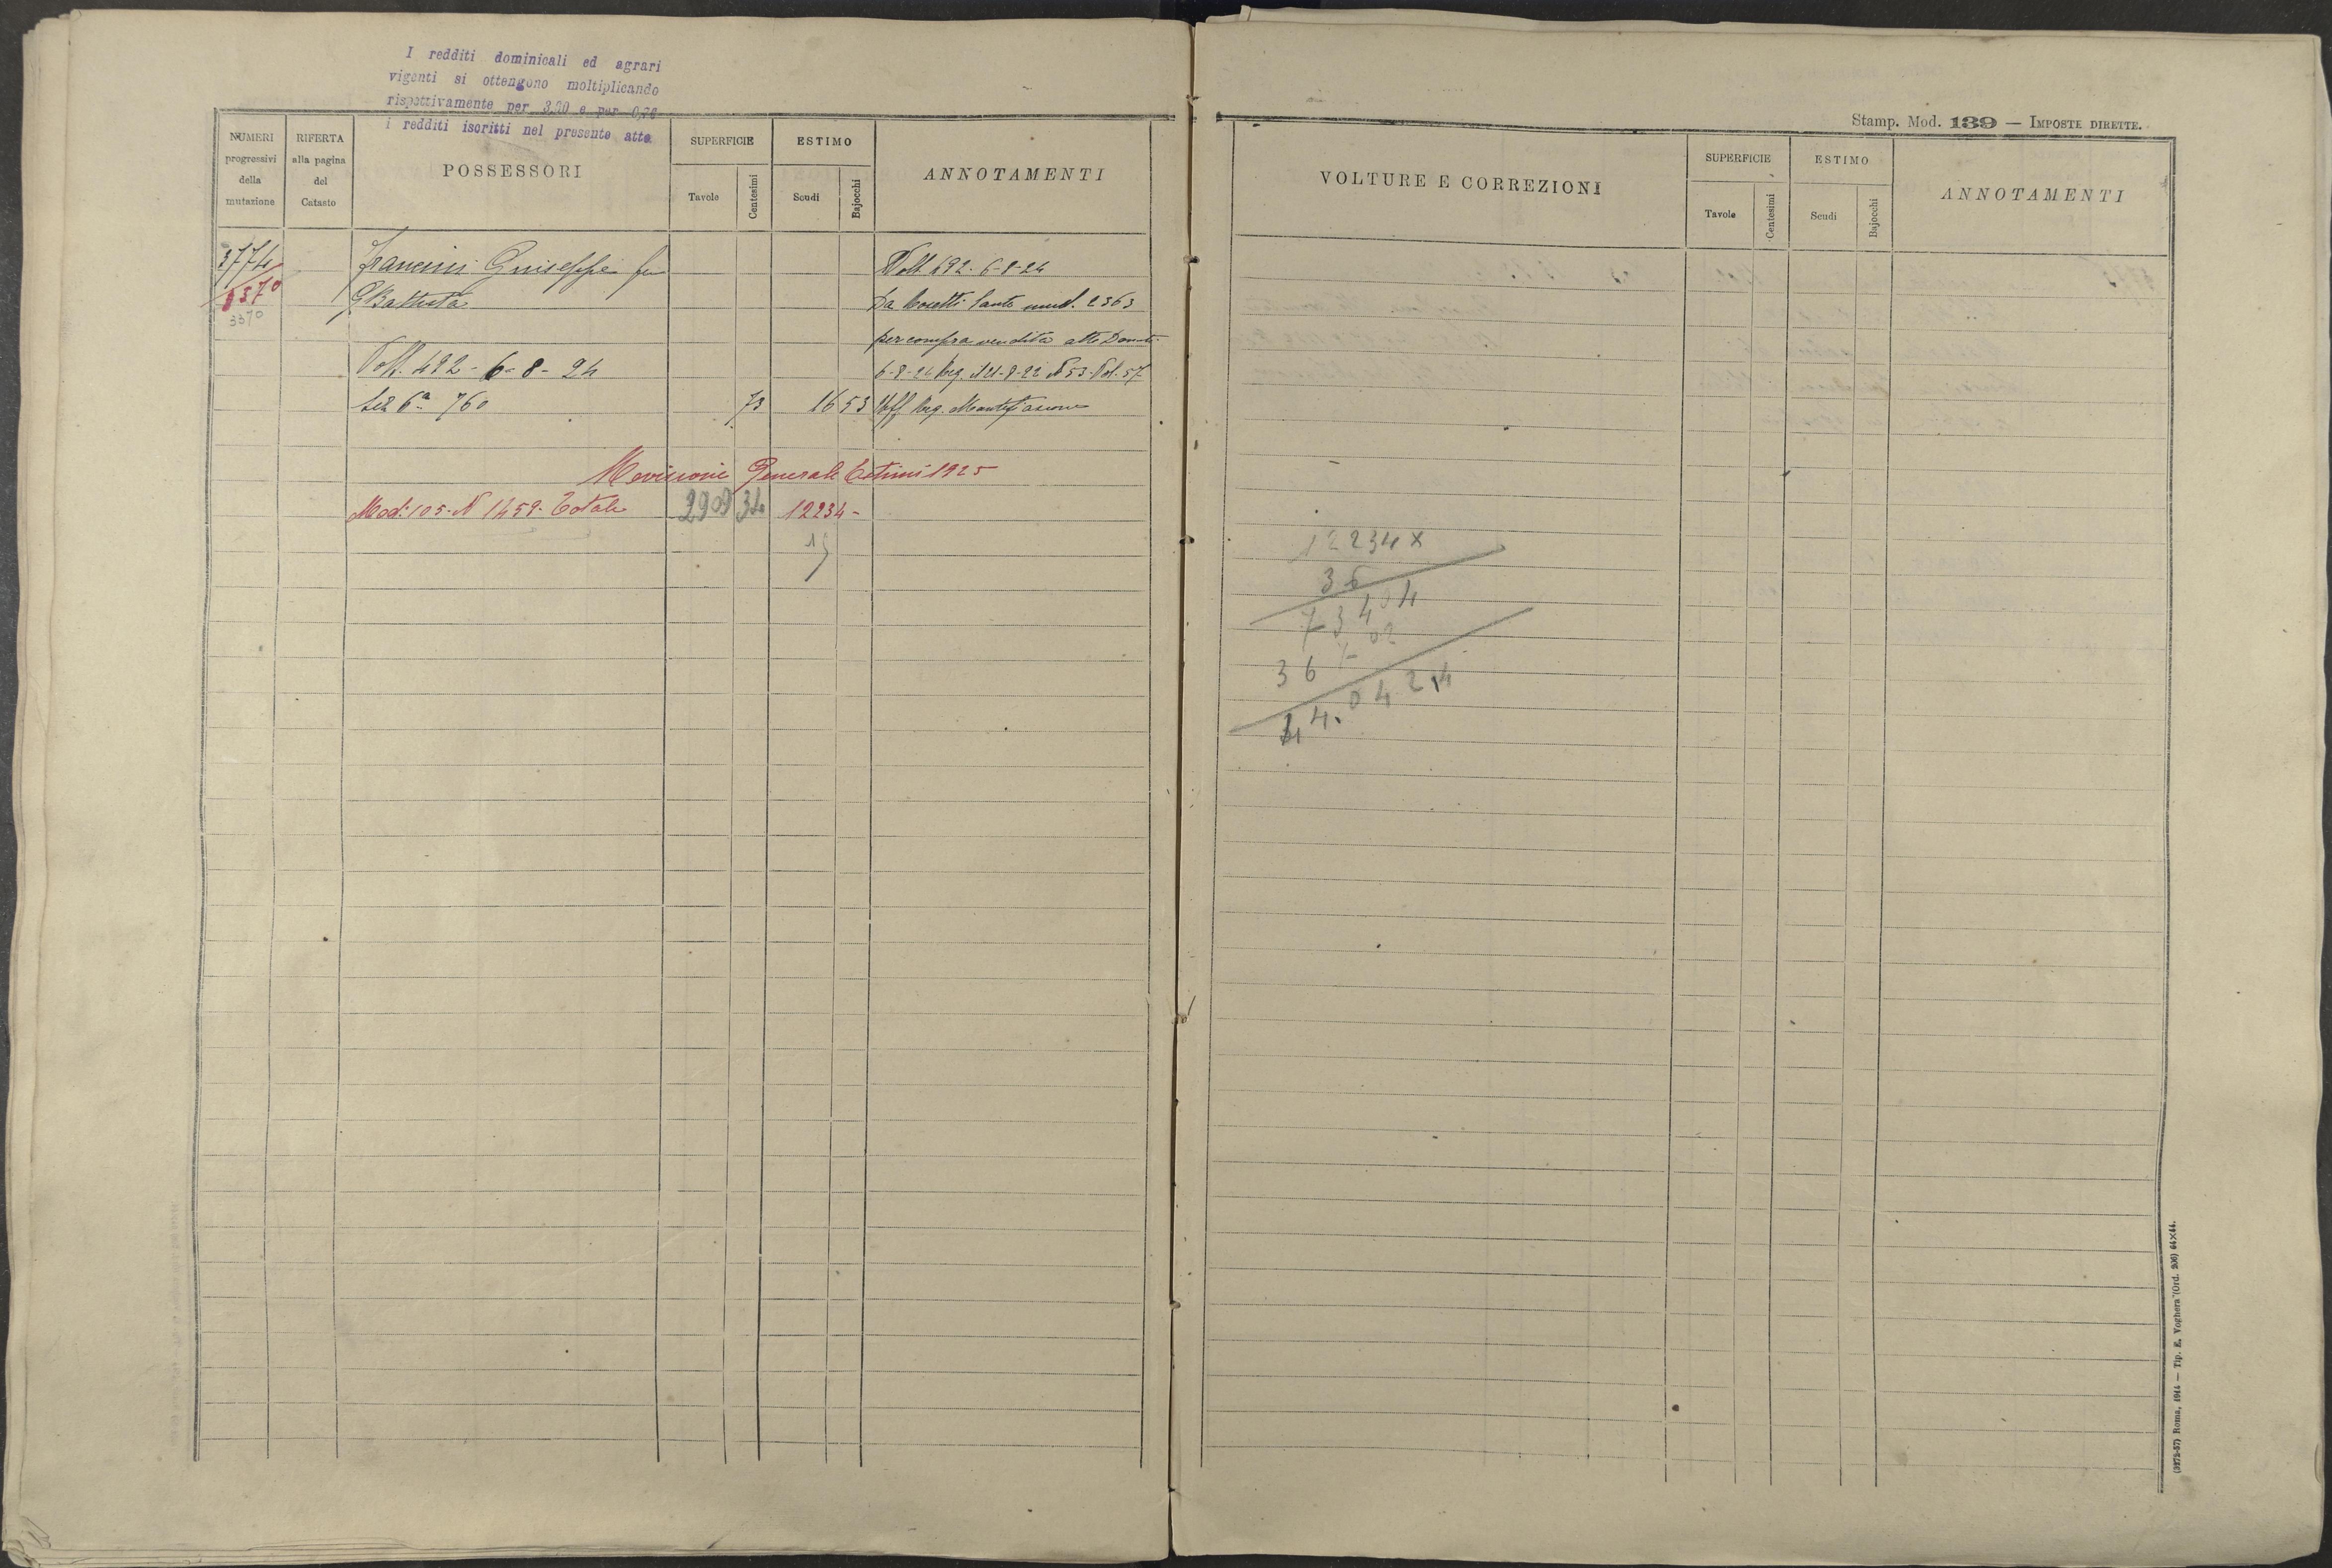 I redditi dominicali ed agrari
vigenti si ottengono moltiplicando
rispettivamente per 3,20 e per 0,
i redditi iscritti nel presente atto
NUMERI
progressivi
della
mutazione
RIFERTA
alla pagina
del
Catasto
POSSESSORI
SUPERFICIE
Tavole
Centesimi
ESTIMO
Scudi
Bajocchi
ANNOTAMENTI
3774
Francini Giuseppe fu
Volt. 492. 6-8-24
3370
GBattista
Da Santo mud. 2363
3370
per compra vendita atto
Volt. 492 - 6 - 8 - 24
6-8-22 Reg. N53 Vol. 57
Sez 6ª 760
73
16 53
Uff Reg. Montefiascone
Revisione Generale Estimi 1925
Mod: 105. N 1459. Totale
2909 34
12234 -
15
Stamp. Mod. 139 — IMPOSTE DIRETTE.
VOLTURE E CORREZIONI
SUPERFICIE
Tavole
Centesimi
ESTIMO
Scudi
Bajocchi
ANNOTAMENTI
12234 x
36
73404
36702
44.0424
(3272-57) Roma, 1914 — Tip. E. Voghera (Ord. 206) 64×44.